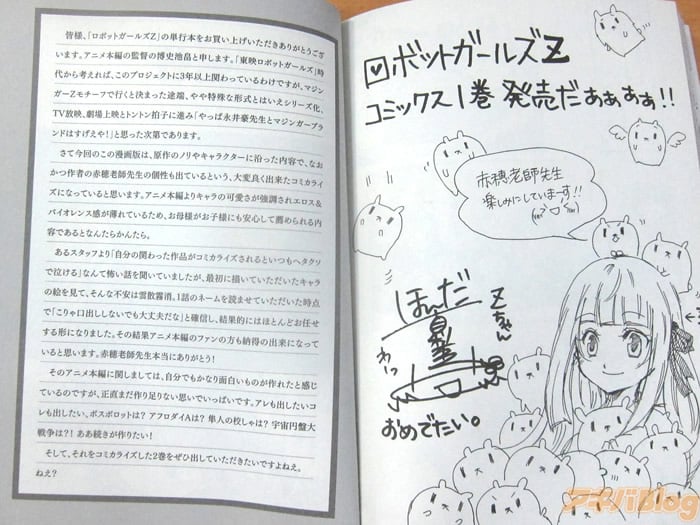 皆様、「ロボットガールズZ」の単行本をお買い上げいただきありがとうござ
います。アニメ本編の監督の博史池畠と申します。「東映ロボットガールズ」時
代から考えれば、このプロジェクトに3年以上関わっているわけですが、マジン
ガーZモチーフで行くと決まった途端、やや特殊な形式とはいえシリーズ化、
TV放映、劇場上映とトントン拍子に進み「やっぱ永井豪先生とマジンガーブラ
ンドはすげえや!」と思った次第であります。
さて今回のこの漫画版は、原作のノリやキャラクターに沿った内容で、なお
かつ作者の赤穂老師先生の個性も出ているという、大変良く出来たコミカライ
ズになっていると思います。アニメ本編よりキャラの可愛さが強調されエロス&
バイオレンス感が薄れているため、お母様がお子様にも安心して薦められる内
容であるとなんたらかんたら。
あるスタッフより「自分の関わった作品がコミカライズされるといつもヘタクソ
で泣ける」なんて怖い話を聞いていましたが、最初に描いていただいたキャラ
の絵を見て、そんな不安は雲散霧消。1話のネームを読ませていただいた時点
で「こりゃ口出ししないでも大丈夫だな」と確信し、結果的にはほとんどお任せ
する形になりました。その結果アニメ本編のファンの方も納得の出来になってい
ると思います。赤穂老師先生本当にありがとう!
そのアニメ本編に関しましては、自分でもかなり面白いものが作れたと感じ
ているのですが、正直まだ作り足りない思いでいっぱいです。アレも出したいコ
レも出したい。ボスボロットは? アフロダイAは? 隼人の校しゃは? 宇宙円盤大
戦争は?! ああ続きが作りたい!
そして、それをコミカライズした2巻をぜひ出していただきたいですよねえ。
ねえ?
ロボットガールズZ
コミックス1巻 発売だぁぁぁぁ!!
赤穂老師先生
楽しみにしていまーす!!
Zちゃん
ほんだ
わーっ
おめでたい。
アキバBlog